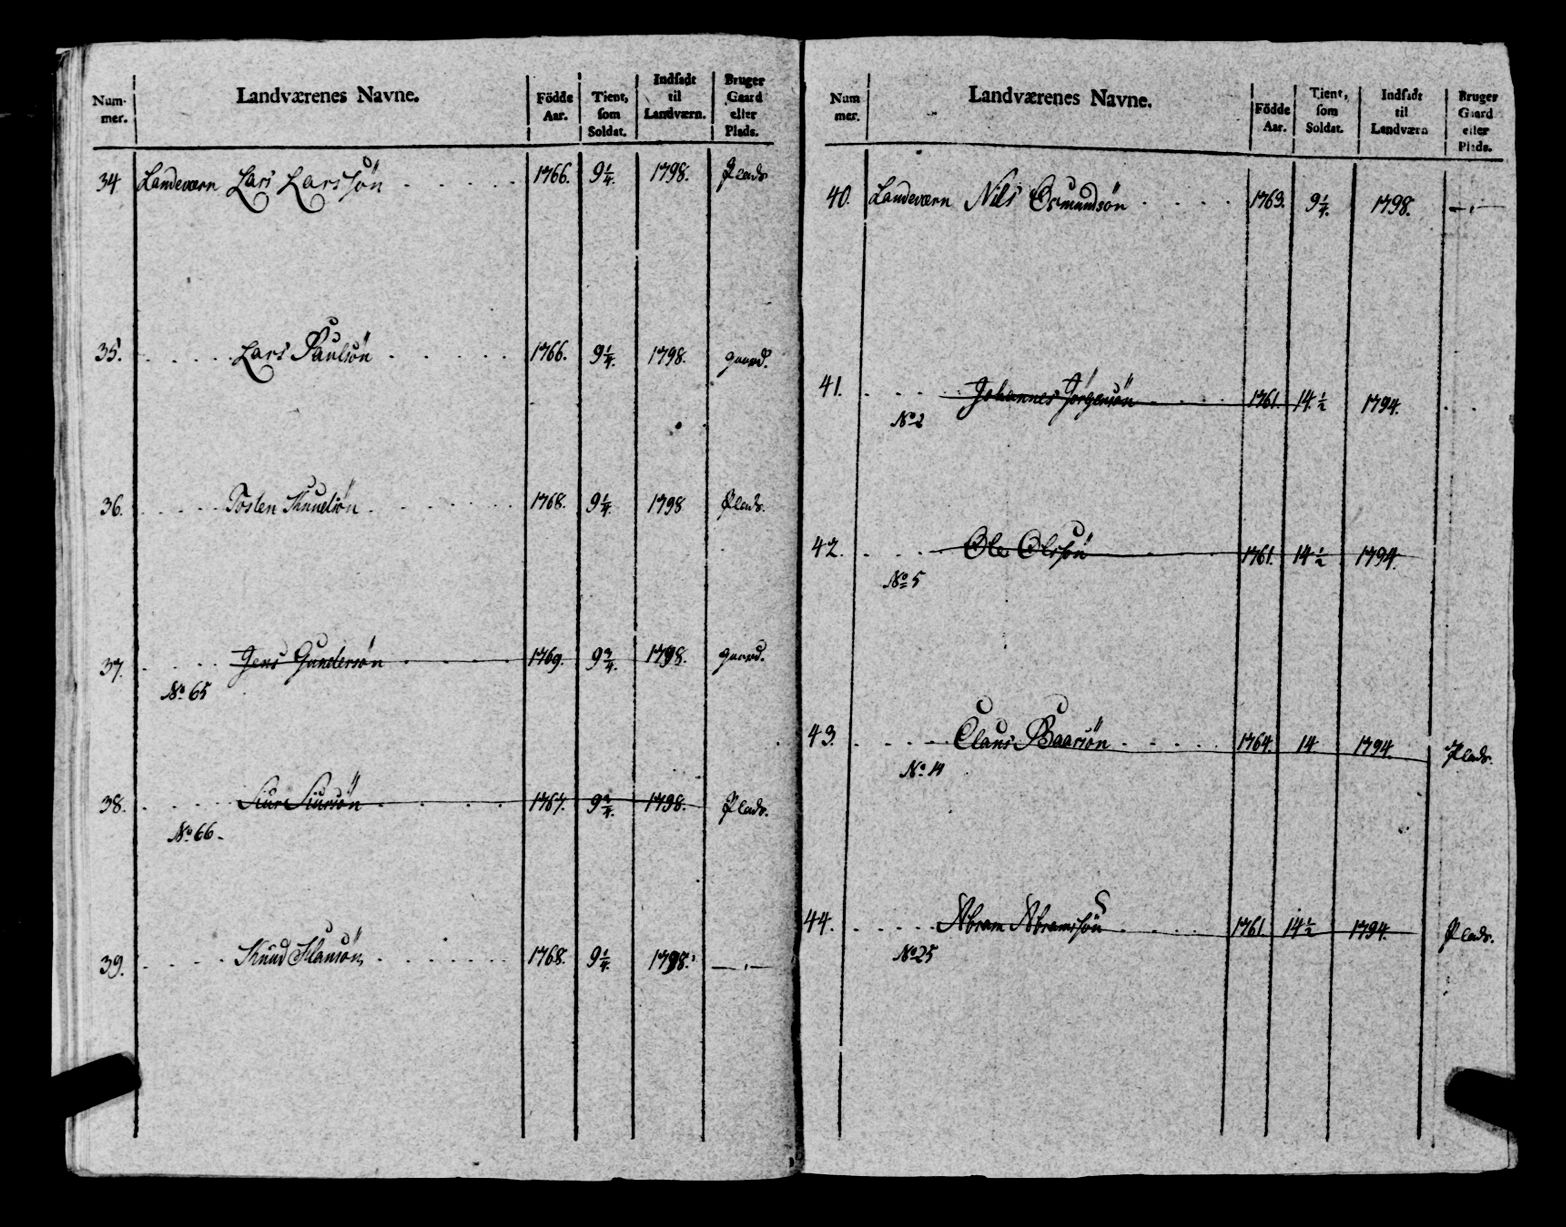 Num-mer. Landværenes Navne. Födde Aar. Tient, som Soldat. Indsadt til Landværn. Bruger Gaard eller Plads.
34 Landeværn Lars Larssön . . . . . 1766. 9 1/4. 1798. Plads
35. . . . . . Lars Paulsön . . . . . 1766. 9 1/4. 1798. gaard.
36. . . . . . Tosten Knudsön . . . . . . 1768. 9 1/4. 1798 Plads.
37. . . . . Jens Gundersön . . 1769. 9 3/4. 1798. gaard.
No. 65
38. . . . . . Siur Siursön . . . . 1767. 9 3/4. 1798. Plads.
No. 66.
39. . . . . Knud Hansön . . . . . . 1768. 9 1/4. 1798. —„—
Num mer. Landværenes Navne. Födde Aar. Tient, som Soldat. Indsadt til Landværn Bruger Gaard eller Plads.
40. Landeværn Nils Osmundsön . . . . 1763. 9 1/4. 1798. —„—
41. . . . . . Johannes Jörgensön . . . . 1761. 14 1/2 1794. . .
No 2
42. . . . . Ole Olssön . . 1761. 14 1/2 1794.
No 5
43. . . . . Claus Baarsön . . . . . 1764. 14 1794. Plads.
No. 14
44. . . . . . Abram Abramssön . . . . 1761 14 1/2 1794. Plads.
No 25